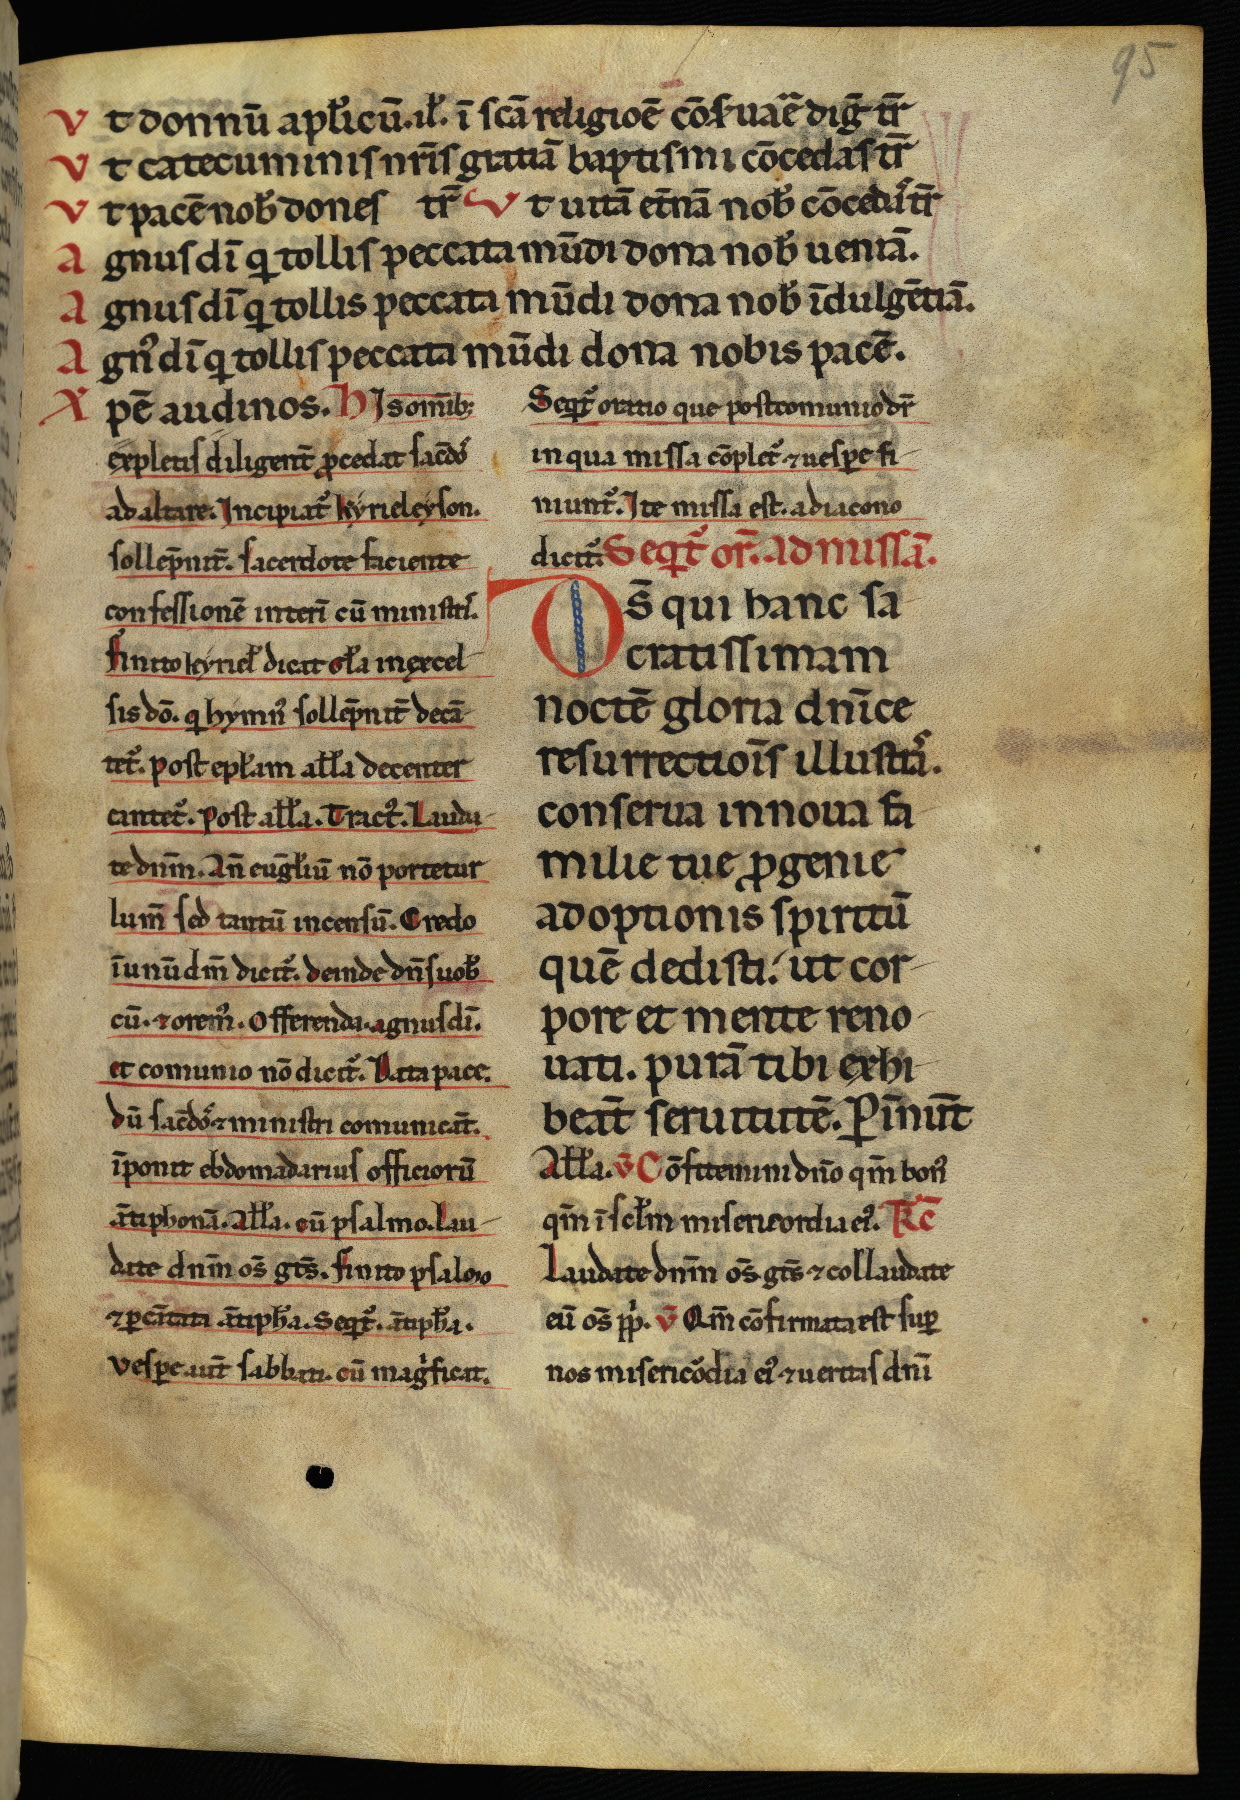 95
Vt donnū apl̄icū. il̄. ī scā religiōe cōs̄uar̄e dig̅ tr̄
Vt catecuminis nr̄is gratiā baptismi cōcedas tr̄
Vt pacē nob̄ dones tr̄ Vt uitā etn̄ā nob̄ cōcedas tr̄
Agnus dī q̄ tollis peccata mūdi dona nob̄ ueniā.
Agnus dī q̄ tollis peccata mūdi dona nob̄ īdulgētiā.
Agn᷒ dī q̄ tollis peccata mūdi dona nobis pacē.
Xpē audi nos. His om̄ib;
expletis diligent̄ ꝓcedat sac̄dos
ad altare. Incipiat᷒ kyrieleyson.
sollēpnit̄. sacerdote faciente
confessionē interī cū ministris.
finito kyriel̄ dicat gl̄a in excel
sis dō. q̄ hymn᷒ sollēpnit̄ decā
tet᷒. post epl̄am all̄a decenter
cantet᷒. Post all̄a. Tract᷒. Lauda
te dn̄m. An̄ eug̅liū nō portetur
lum̄ sed tantū incensū. Credo
ī unū dm̄ dicit᷒. deinde dn̄s uob̄
cū. ⁊ orem᷒. Offerenda. agnus dī.
et comunio nō dicit᷒. Data pace.
dū sac̄dos ⁊ ministri comunicāt.
īponit ebdomadarius officiorū
ātiphonā. All̄a. cū psalmo. Lau
date dn̄m om̄s gt̄s. finito psalmo
⁊ ꝑcātata ātiph̄a. Seqt᷒. ātiph̄a.
Vesꝑe aut̄ sabbati. cū magͥficat.
Seqt᷒ oratio que postcomunio dr̄
in qua missa cōplet᷒ ⁊ uesꝑe fi
niunt᷒. Ite missa est. a diacono
dicit᷒. Seqt᷒ or̄. ad missā.
Ds̄ qui hanc sa
cratissimam
noctē gloria dn̄ice
resurrectiōis illustras.
conserua in noua fa
milie tue ꝓgenie
adoptionis spiritū
quē dedisti. ut cor
pore et mente reno
uati. purā tibi exhi
beāt seruitutē. P in̄ unit̄
All̄a. V̄ Cōfitemini dn̄o qm̄ bon᷒
qm̄ ī scl̄m misericordia ei᷒. Tc̄
Laudate dn̄m om̄s gt̄s ⁊ collaudate
eū om̄s ppl̄i. V̄ Qm̄ cōfirmata est suꝑ
nos misericōdia ei᷒ ⁊ ueritas dn̄i